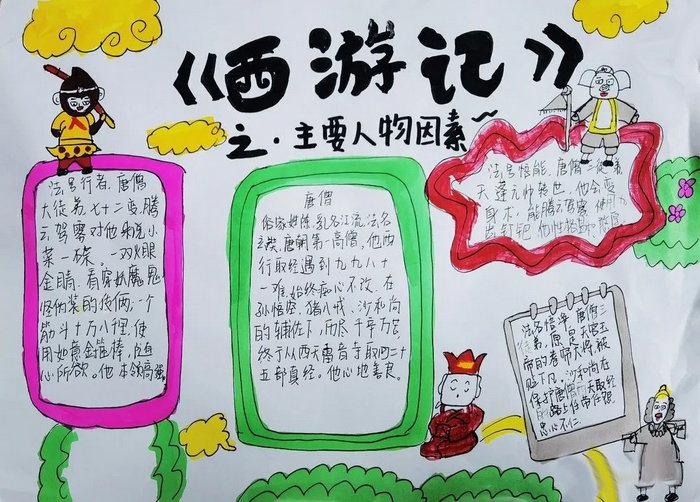 《西游记》
之·主要人物因素
法号行者,唐僧
大徒弟七十二变,腾
云驾雾对他来说小
菜一碟。一双火眼
金睛,看穿妖魔鬼
怪伪装的伎俩;一个
筋斗十万八千里,使
用如意金箍棒,随
心所欲。他本领高强
唐僧
俗家姓陈,乳名江流,法名
玄奘,唐朝第一高僧,他西
行取经遇到九九八十
一难,始终痴心不改,在
孙悟空、猪八戒、沙和尚
的辅佐下,历尽千辛万苦,
终于从西天雷音寺取回三十
五部真经。他心地善良。
法号悟能,唐僧二徒弟
天蓬元帅转世,他会变
身术,能腾云驾雾,使用
九齿钉钯
法名悟净,唐僧三
徒弟,原是天宫玉
帝的卷帘大将,被
贬下凡。沙和尚在
保护唐僧西天取经
的路上任劳任怨,
忠心不仁。